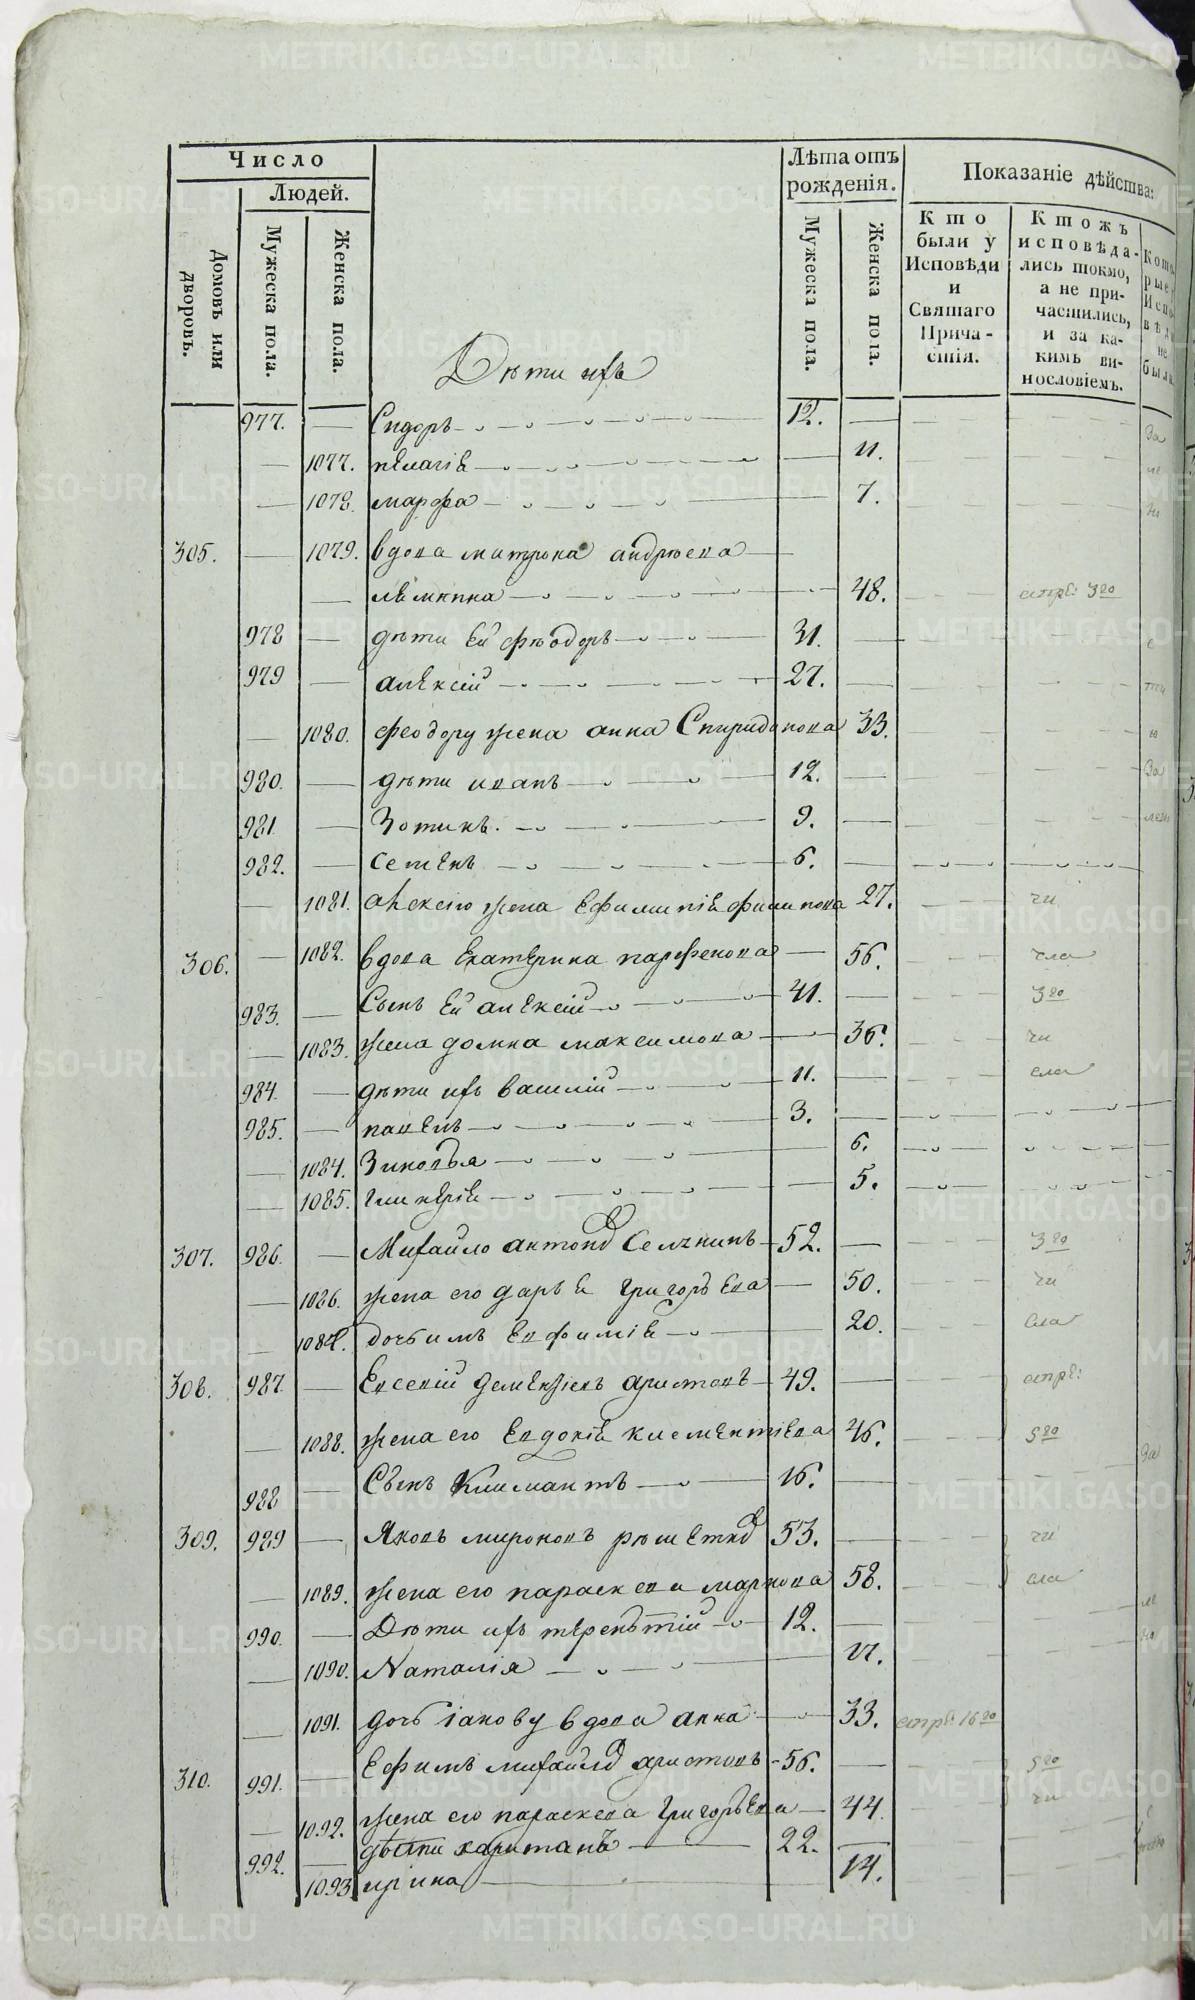 Число
Людей.
Домовъ или дворовъ.
Мужеска пола.
Женска пола.
Лѣта отъ рожденія.
Мужеска пола.
Женска пола.
Показаніе дѣйства:
Кто были у Исповѣди и Святаго Причастія.
Ктожъ исповѣдались токмо, а не причастились, и за какимъ винословіемъ.
Которые Исповѣди не были
Дѣти ихъ
977. — Сидоръ 12. —
— 1077. пелагіе — 11.
— 1078. марфа — 7.
305. — 1079. вдова матрона андрѣева
48.
978 — дѣти Ея феодоръ 31. —
979 — алексій 27. —
— 1080. феодору жена анна Спиридонова 33.
980. — дѣти иванъ 12. —
981 — Зотикъ. 9.
982. — семенъ 6. —
— 1081. алексію жена Ефиміе филипова 27.
306. — 1082. вдова Екатерина парфенова — 56.
983. — Сынъ Ея алексій 41. —
— 1083. жена домна максимова — 36.
984. — дѣти ихъ василій 11. —
985. — павелъ 3. —
— 1084. Зиновья — 6.
— 1085. гликеріе — 5.
307. 986. — Михайло антоновъ 52. —
— 1086. жена его дарье григорьева — 50.
— 1087. дочь имъ Евфиміе 20.
308. 987. — Евсевій дементьевъ аристовъ 49. —
— 1088. жена его Евдокіе клементіева 46.
988 — Сынъ Климантъ 16. —
309. 989 — Яковъ мироновъ 53. —
— 1089. жена его параскева маркова 58.
990. — Дѣти ихъ терентій 12. —
— 1090. Наталія 17.
1091. дочь іакову вдова анна — 33.
310. 991. — Ефимъ михайловъ аристовъ 56. —
— 1092. жена его параскева григорьева — 44.
992. — дѣти хаританъ 22. —
1093 ирина 14.
METRIKI.GASO-URAL.RU